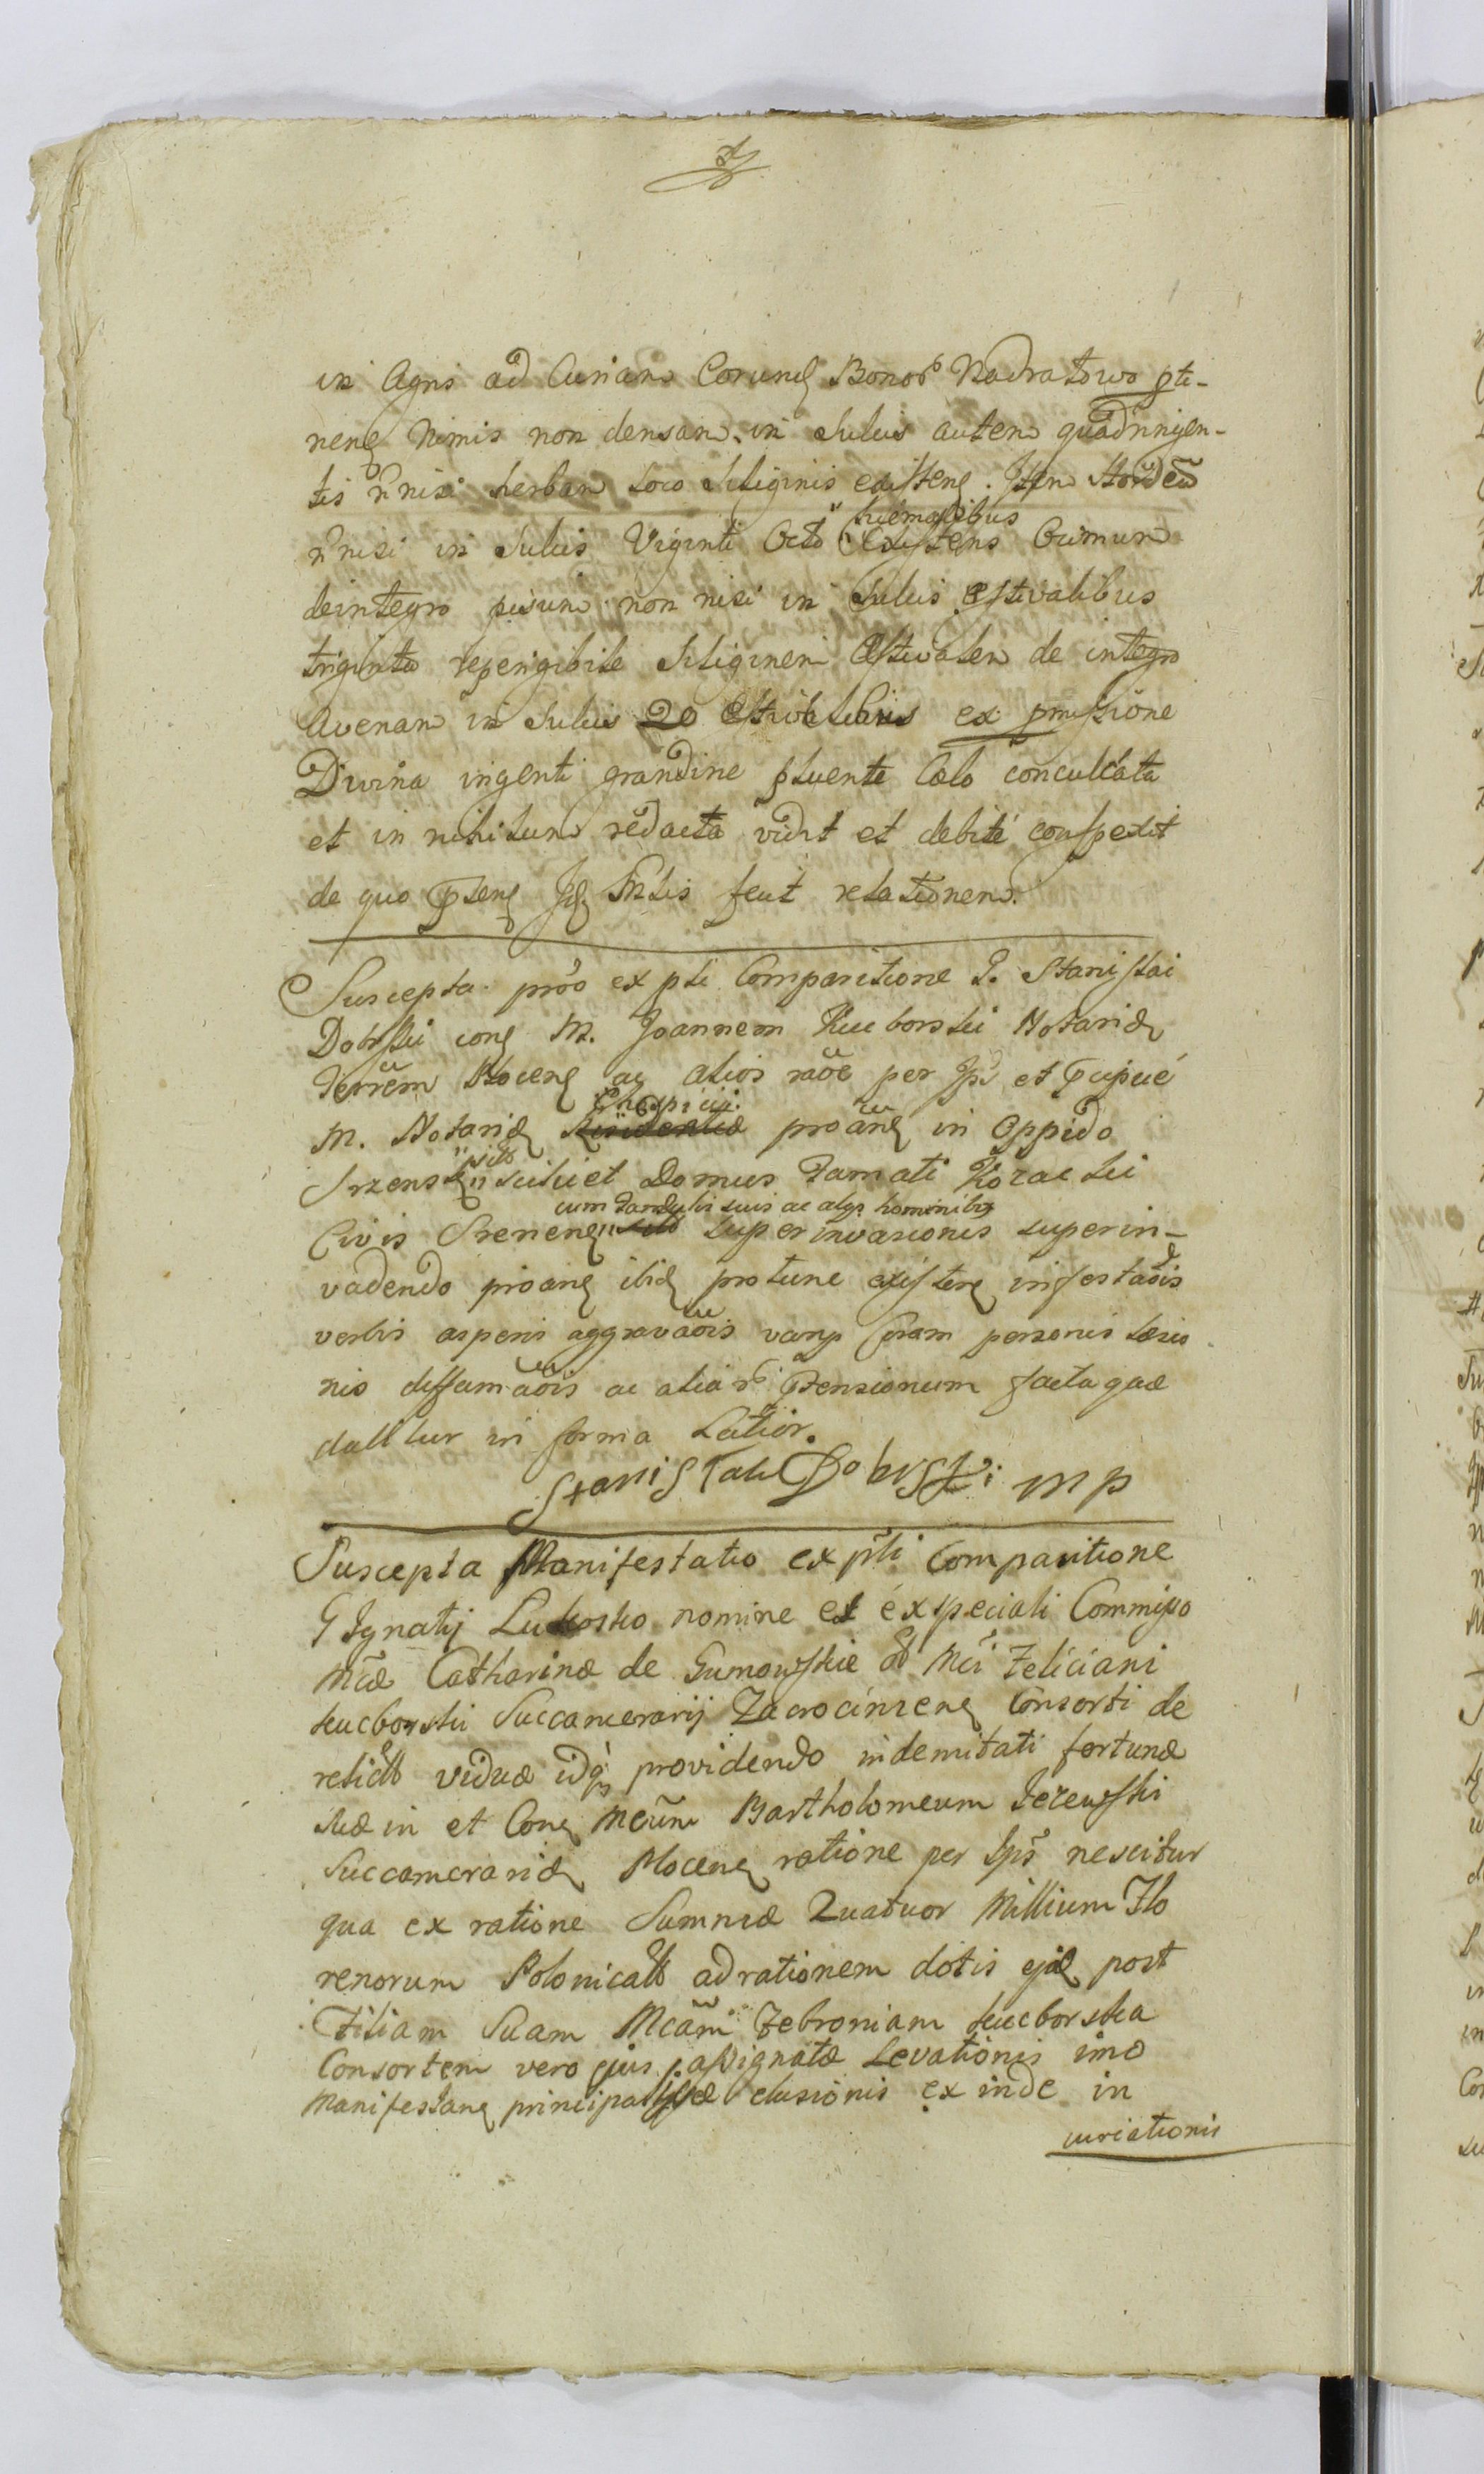 in Agris ad Curiam Eorund Bonor Nadratowo pti-
nen nimis non densam, in Sulcis autem quadringen-
tis n nisi herbam loco Siliginis existen. Item Hordeu
hiemalibus
n nisi in Sulcis Viginti Octo Existens Cunun
deintegro pisum non nisi in Sulcis Estivalibus
triginta reperigibile Siliginem Estivalem de integro
Avenam in Sulcis 20 Estivalibus ex pmissione
Divina ingenti grandine fluente Celo conculcata
et in nihilum redacta vidit et debite conspexit
de quo psens Jd Mtis fecit relationem.
Suscepta pro ex pti Comparitione G. Stanislai
Dobrski con M. Joannem Kucborski Notariu
Terrem Plocen ac alios raoe per Ips et pcipue
Chospicii
M. Notariu Residentia proan in Oppido
Srzensk scilicet Domus Famati Kozacki
cum Famulis suis ac alys hominibus
Civis Srenen superinvasionis superin-
vadendo proan ibid protunc existen infestaois
verbis asperis aggravaois varys Coram personis læsio
nis diffamaois ac aliar ptensionum facta quæ
dabitur in forma Latior.
Stanislaw Dobrski mp
Suscepta Manifestatio ex pti Comparitione
G Ignatij Lukosko nomine et ex speciali Commisso
Mcæ Catharinæ de Gumowskie od Mci Feliciani
Kucborski Succamerarij Zacrocimsen Consorti de
relicta viduæ idq providendo indemitati fortunæ
suæ in et Con Mcum Bartholomeum Jezewski
Succamerariu Plocen ratione per Ips nescitur
qua ex ratione Summæ Quatuor Millium Flo
renorum Polonical ad rationem dotis ejus post
Filiam Suam Mcam Febroniam Kucborska
Consortem vero ejus p assignatæ Levationis imo
Manifestan principalisve elusionis ex inde in
curiationis